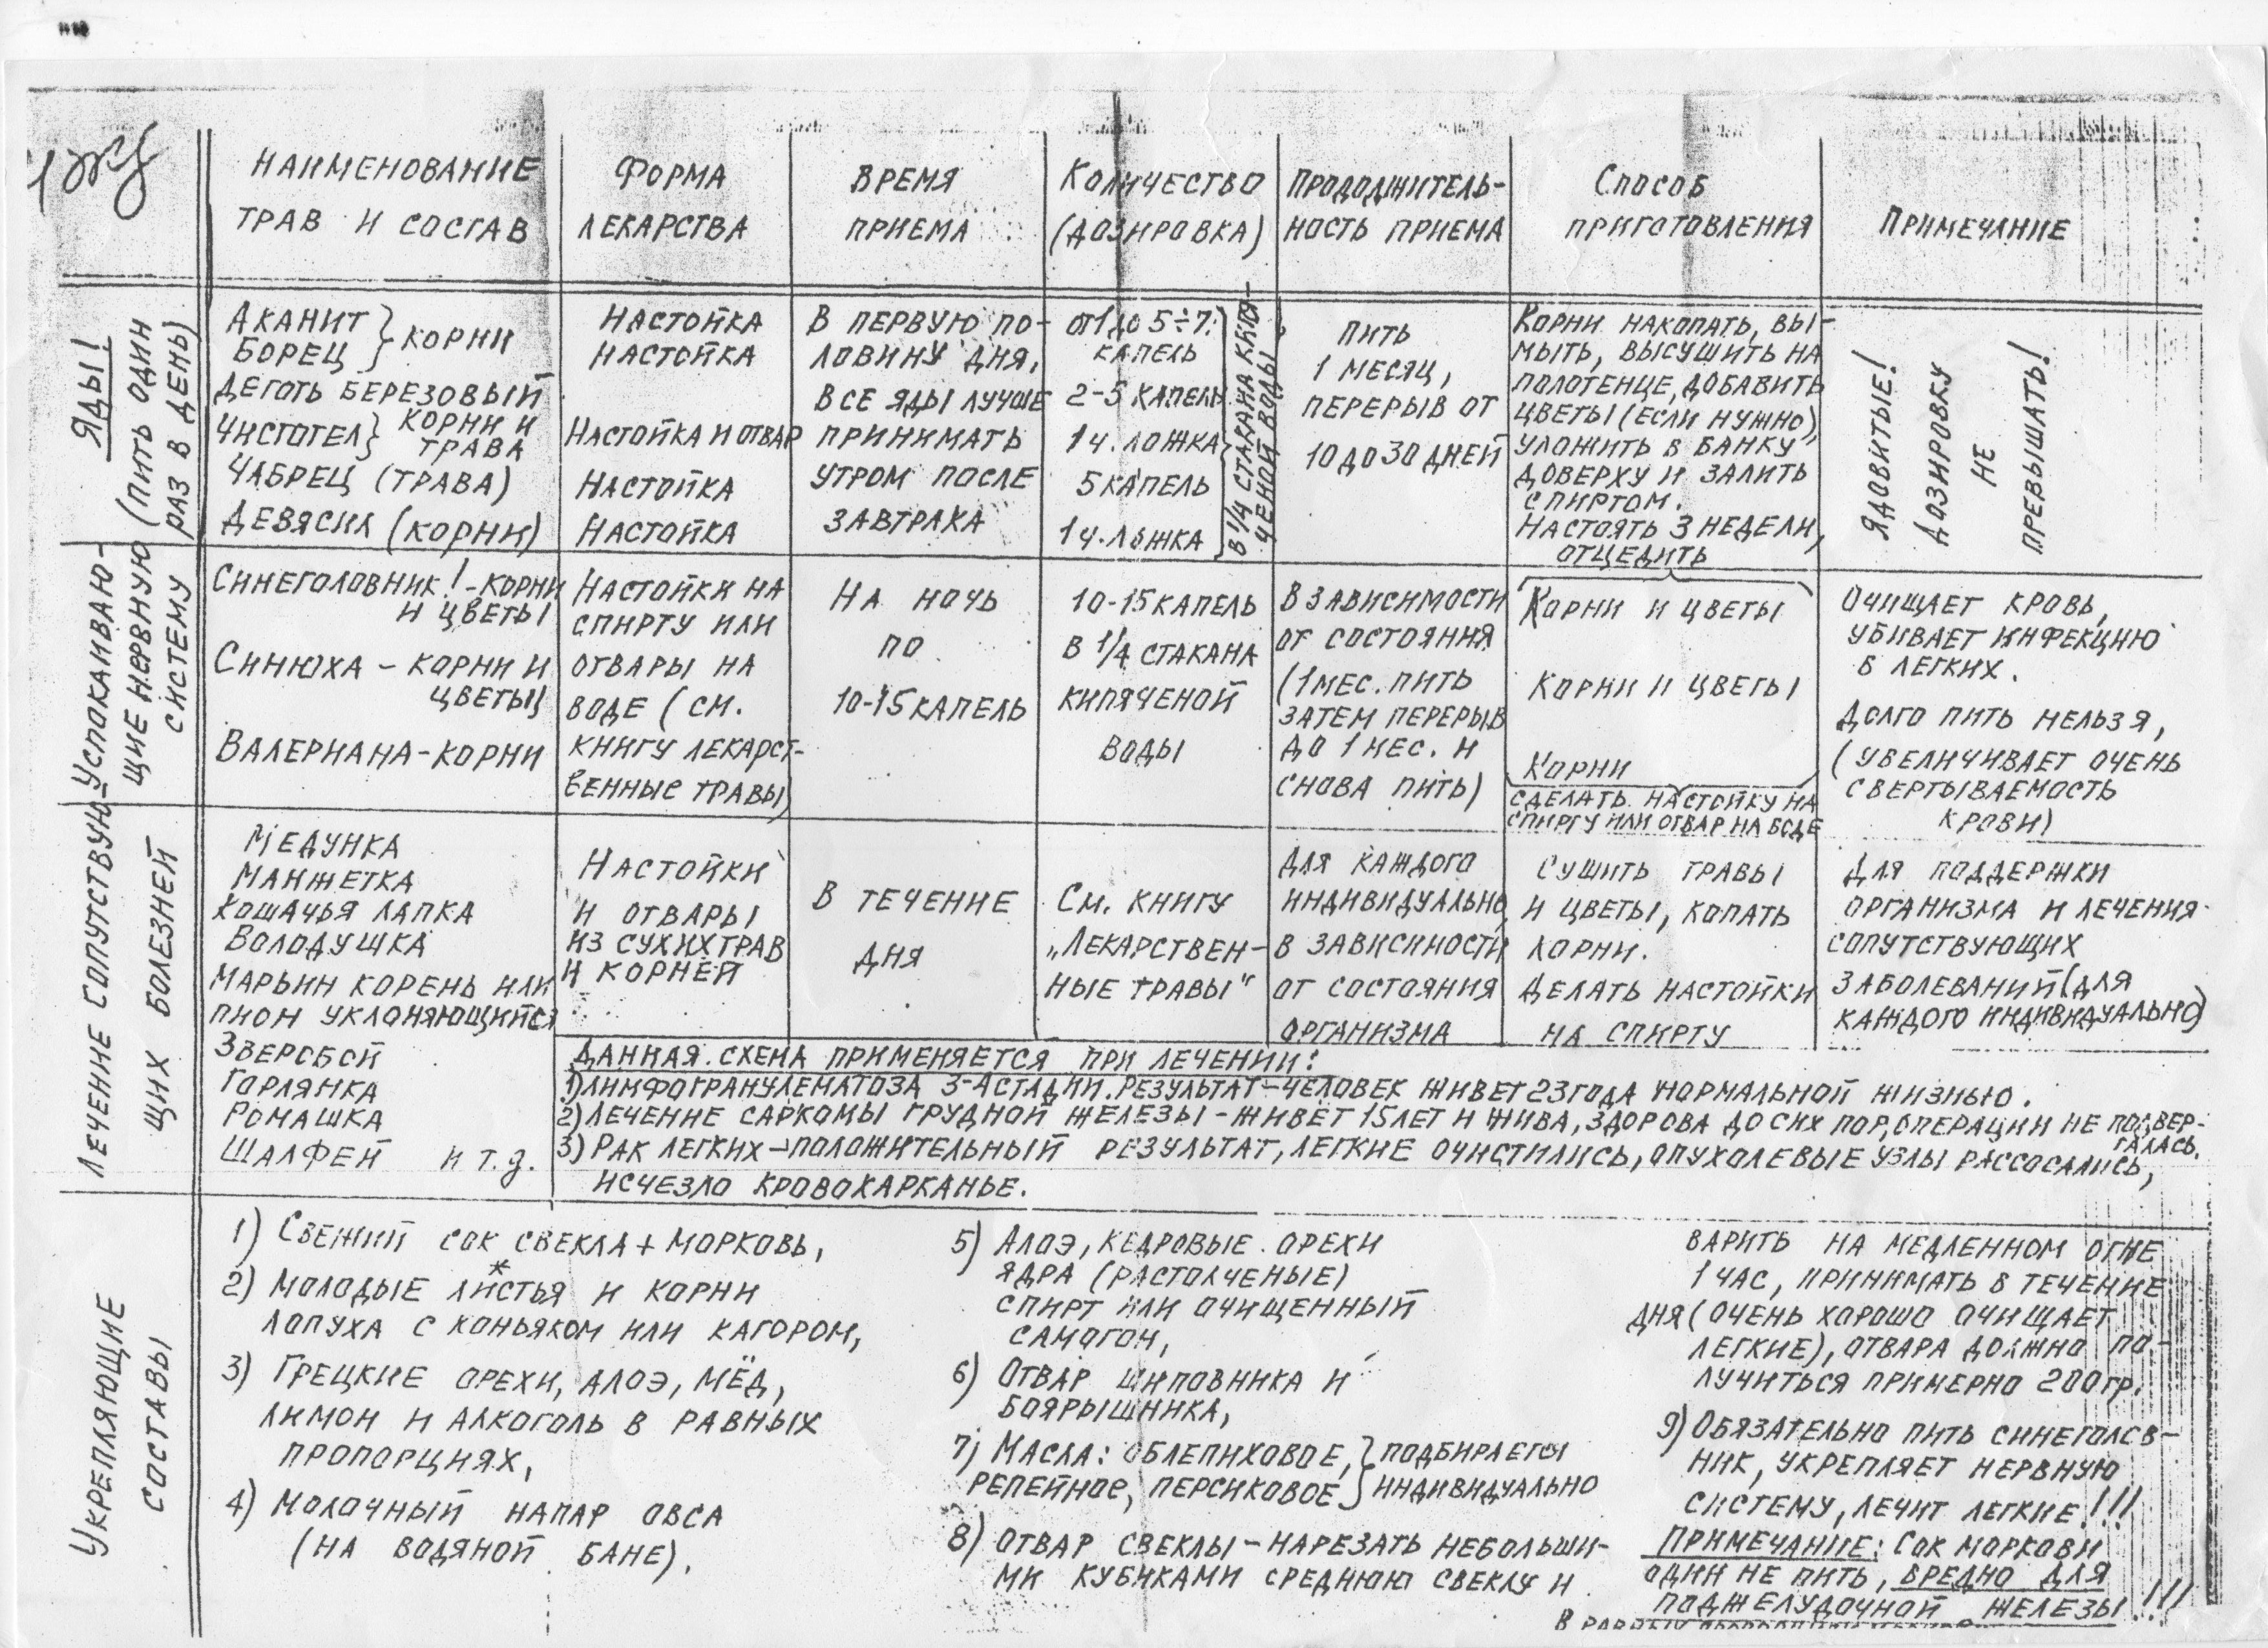 НАИМЕНОВАНИЕ
ТРАВ И СОСТАВ
ФОРМА
ЛЕКАРСТВА
ВРЕМЯ
ПРИЕМА
КОЛИЧЕСТВО
(ДОЗИРОВКА)
ПРОДОЛЖИТЕЛЬ-
НОСТЬ ПРИЕМА
СПОСОБ
ПРИГОТОВЛЕНИЯ
ПРИМЕЧАНИЕ
ЯДЫ!
(ПИТЬ ОДИН
РАЗ В ДЕНЬ)
АКАНИТ
БОРЕЦ } КОРНИ
ДЕГОТЬ БЕРЕЗОВЫЙ
ЧИСТОТЕЛ } КОРНИ И
ТРАВА
ЧАБРЕЦ (ТРАВА)
ДЕВЯСИЛ (КОРНИ)
НАСТОЙКА
НАСТОЙКА
НАСТОЙКА И ОТВАР
НАСТОЙКА
НАСТОЙКА
В ПЕРВУЮ ПО-
ЛОВИНУ ДНЯ,
ВСЕ ЯДЫ ЛУЧШЕ
ПРИНИМАТЬ
УТРОМ ПОСЛЕ
ЗАВТРАКА
ОТ 1 ДО 5÷7
КАПЕЛЬ
2-5 КАПЕЛЬ
1 Ч. ЛОЖКА
5 КАПЕЛЬ
1 Ч. ЛОЖКА
В 1/4 СТАКАНА КИПЯ-
ЧЕНОЙ ВОДЫ
ПИТЬ
1 МЕСЯЦ,
ПЕРЕРЫВ ОТ
10 ДО 30 ДНЕЙ
КОРНИ НАКОПАТЬ, ВЫ-
МЫТЬ, ВЫСУШИТЬ НА
ПОЛОТЕНЦЕ, ДОБАВИТЬ
ЦВЕТЫ (ЕСЛИ НУЖНО),
УЛОЖИТЬ В БАНКУ
ДОВЕРХУ И ЗАЛИТЬ
СПИРТОМ.
НАСТОЯТЬ 3 НЕДЕЛИ,
ОТЦЕДИТЬ
ЯДОВИТЫЕ!
ДОЗИРОВКУ
НЕ
ПРЕВЫШАТЬ!
УСПОКАИВАЮ-
ЩИЕ НЕРВНУЮ
СИСТЕМУ
СИНЕГОЛОВНИК! - КОРНИ
И ЦВЕТЫ
СИНЮХА - КОРНИ И
ЦВЕТЫ
ВАЛЕРИАНА - КОРНИ
НАСТОЙКИ НА
СПИРТУ ИЛИ
ОТВАРЫ НА
ВОДЕ (СМ.
КНИГУ ЛЕКАРСТ-
ВЕННЫЕ ТРАВЫ)
НА НОЧЬ
ПО
10-15 КАПЕЛЬ
10-15 КАПЕЛЬ
В 1/4 СТАКАНА
КИПЯЧЕНОЙ
ВОДЫ
В ЗАВИСИМОСТИ
ОТ СОСТОЯНИЯ
(1 МЕС. ПИТЬ
ЗАТЕМ ПЕРЕРЫВ
ДО 1 МЕС. И
СНОВА ПИТЬ)
КОРНИ И ЦВЕТЫ
КОРНИ И ЦВЕТЫ
КОРНИ
СДЕЛАТЬ НАСТОЙКУ НА
СПИРТУ ИЛИ ОТВАР НА ВОДЕ
ОЧИЩАЕТ КРОВЬ,
УБИВАЕТ ИНФЕКЦИЮ
В ЛЕГКИХ.
ДОЛГО ПИТЬ НЕЛЬЗЯ,
(УВЕЛИЧИВАЕТ ОЧЕНЬ
СВЕРТЫВАЕМОСТЬ
КРОВИ)
ЛЕЧЕНИЕ СОПУТСТВУЮ-
ЩИХ БОЛЕЗНЕЙ
МЕДУНКА
МАНЖЕТКА
КОШАЧЬЯ ЛАПКА
ВОЛОДУШКА
МАРЬИН КОРЕНЬ ИЛИ
ПИОН УКЛОНЯЮЩИЙСЯ
ЗВЕРОБОЙ
ГОРЛЯНКА
РОМАШКА
ШАЛФЕЙ И Т.Д.
НАСТОЙКИ
И ОТВАРЫ
ИЗ СУХИХ ТРАВ
И КОРНЕЙ
В ТЕЧЕНИЕ
ДНЯ
СМ. КНИГУ
„ЛЕКАРСТВЕН-
НЫЕ ТРАВЫ"
ДЛЯ КАЖДОГО
ИНДИВИДУАЛЬНО,
В ЗАВИСИМОСТИ
ОТ СОСТОЯНИЯ
ОРГАНИЗМА
СУШИТЬ ТРАВЫ
И ЦВЕТЫ, КОПАТЬ
КОРНИ.
ДЕЛАТЬ НАСТОЙКИ
НА СПИРТУ
ДЛЯ ПОДДЕРЖКИ
ОРГАНИЗМА И ЛЕЧЕНИЯ
СОПУТСТВУЮЩИХ
ЗАБОЛЕВАНИЙ (ДЛЯ
КАЖДОГО ИНДИВИДУАЛЬНО)
ДАННАЯ СХЕМА ПРИМЕНЯЕТСЯ ПРИ ЛЕЧЕНИИ:
1) ЛИМФОГРАНУЛЕМАТОЗА 3-4 СТАДИИ. РЕЗУЛЬТАТ - ЧЕЛОВЕК ЖИВЕТ 23 ГОДА НОРМАЛЬНОЙ ЖИЗНЬЮ.
2) ЛЕЧЕНИЕ САРКОМЫ ГРУДНОЙ ЖЕЛЕЗЫ - ЖИВЁТ 15 ЛЕТ И ЖИВА, ЗДОРОВА ДО СИХ ПОР, ОПЕРАЦИИ НЕ ПОДВЕР-
ГАЛАСЬ.
3) РАК ЛЕГКИХ - ПОЛОЖИТЕЛЬНЫЙ РЕЗУЛЬТАТ, ЛЕГКИЕ ОЧИСТИЛИСЬ, ОПУХОЛЕВЫЕ УЗЛЫ РАССОСАЛИСЬ,
ИСЧЕЗЛО КРОВОХАРКАНЬЕ.
УКРЕПЛЯЮЩИЕ
СОСТАВЫ
1) СВЕЖИЙ СОК СВЕКЛА + МОРКОВЬ,
2) МОЛОДЫЕ ЛИСТЬЯ* И КОРНИ
ЛОПУХА С КОНЬЯКОМ ИЛИ КАГОРОМ,
3) ГРЕЦКИЕ ОРЕХИ, АЛОЭ, МЁД,
ЛИМОН И АЛКОГОЛЬ В РАВНЫХ
ПРОПОРЦИЯХ,
4) МОЛОЧНЫЙ НАПАР ОВСА
(НА ВОДЯНОЙ БАНЕ).
5) АЛОЭ, КЕДРОВЫЕ ОРЕХИ
ЯДРА (РАСТОЛЧЕНЫЕ)
СПИРТ ИЛИ ОЧИЩЕННЫЙ
САМОГОН,
6) ОТВАР ШИПОВНИКА И
БОЯРЫШНИКА,
7) МАСЛА: ОБЛЕПИХОВОЕ, } ПОДБИРАЕТСЯ
РЕПЕЙНОЕ, ПЕРСИКОВОЕ } ИНДИВИДУАЛЬНО
8) ОТВАР СВЕКЛЫ - НАРЕЗАТЬ НЕБОЛЬШИ-
МИ КУБИКАМИ СРЕДНЮЮ СВЕКЛУ И
ВАРИТЬ НА МЕДЛЕННОМ ОГНЕ
1 ЧАС, ПРИНИМАТЬ В ТЕЧЕНИЕ
ДНЯ (ОЧЕНЬ ХОРОШО ОЧИЩАЕТ
ЛЕГКИЕ), ОТВАРА ДОЛЖНО ПО-
ЛУЧИТЬСЯ ПРИМЕРНО 200 ГР.
9) ОБЯЗАТЕЛЬНО ПИТЬ СИНЕГОЛОВ-
НИК, УКРЕПЛЯЕТ НЕРВНУЮ
СИСТЕМУ, ЛЕЧИТ ЛЕГКИЕ!!!
ПРИМЕЧАНИЕ: СОК МОРКОВИ
ОДИН НЕ ПИТЬ, ВРЕДНО ДЛЯ
ПОДЖЕЛУДОЧНОЙ ЖЕЛЕЗЫ!!!